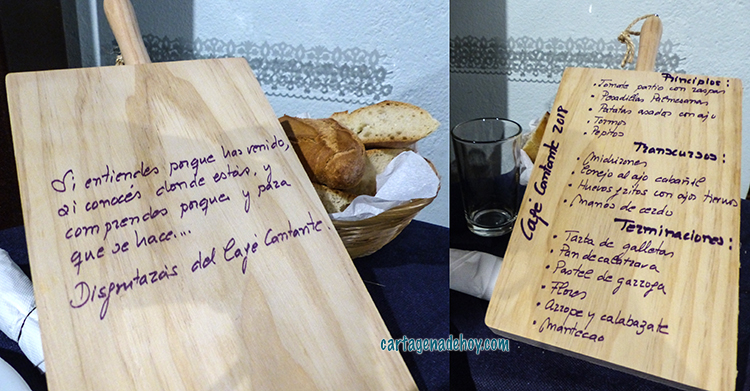 Si entiendes porque has venido,
si conocés donde estás, y
comprendes porque y para
que se hace...
Disfrutarás del Café Cantante.
Café Cantante 2018
Principios:
• Tomate partio con raspas
• Pescadillas Parmesanas
• Patatas asados con ajo
• Tormos
• Pepitos
Transcursos:
• Michirones
• Conejo al ajo cabañil
• Huevos fritos con ajos tiernos
• Manos de cerdo
Terminaciones:
• Tarta de galletas
• Pan de calatrava
• Pastel de garroga
• Flores
• Arrope y calabazate
• Mantecao
cartagenadehoy.com